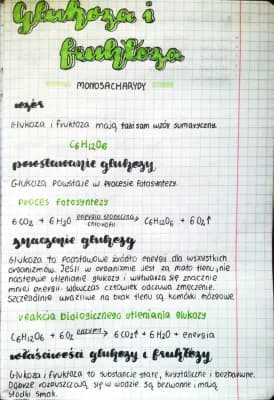 Glukoza i
fruktoza
MONOSACHARYDY
wzór
Glukoza i fruktoza mają taki sam wzór sumaryczny.
C6H12O6
powstawanie glukozy
Glukoza powstaje w procesie fotosyntezy.
proces fotosyntezy
6CO2 + 6H2O energia słoneczna chlorofil → C6H12O6 + 6O2↑
znaczenie glukozy
Glukoza to podstawowe źródło energii dla wszystkich
organizmów. Jeśli w organizmie jest za mało tlenu, nie
następuje utlenianie glukozy i wytwarza się znacznie
mniej energii. Wówczas człowiek odczuwa zmęczenie.
Szczególnie wrażliwe na brak tlenu są komórki mózgowe.
reakcja biologicznego utleniania glukozy
C6H12O6 + 6O2 enzymy → 6CO2↑ + 6H2O + energia
właściwości glukozy i fruktozy
Glukoza i fruktoza to substancje stałe, krystaliczne i bezbarwne.
Dobrze rozpuszczają się w wodzie są bezwonne i mają
słodki smak.